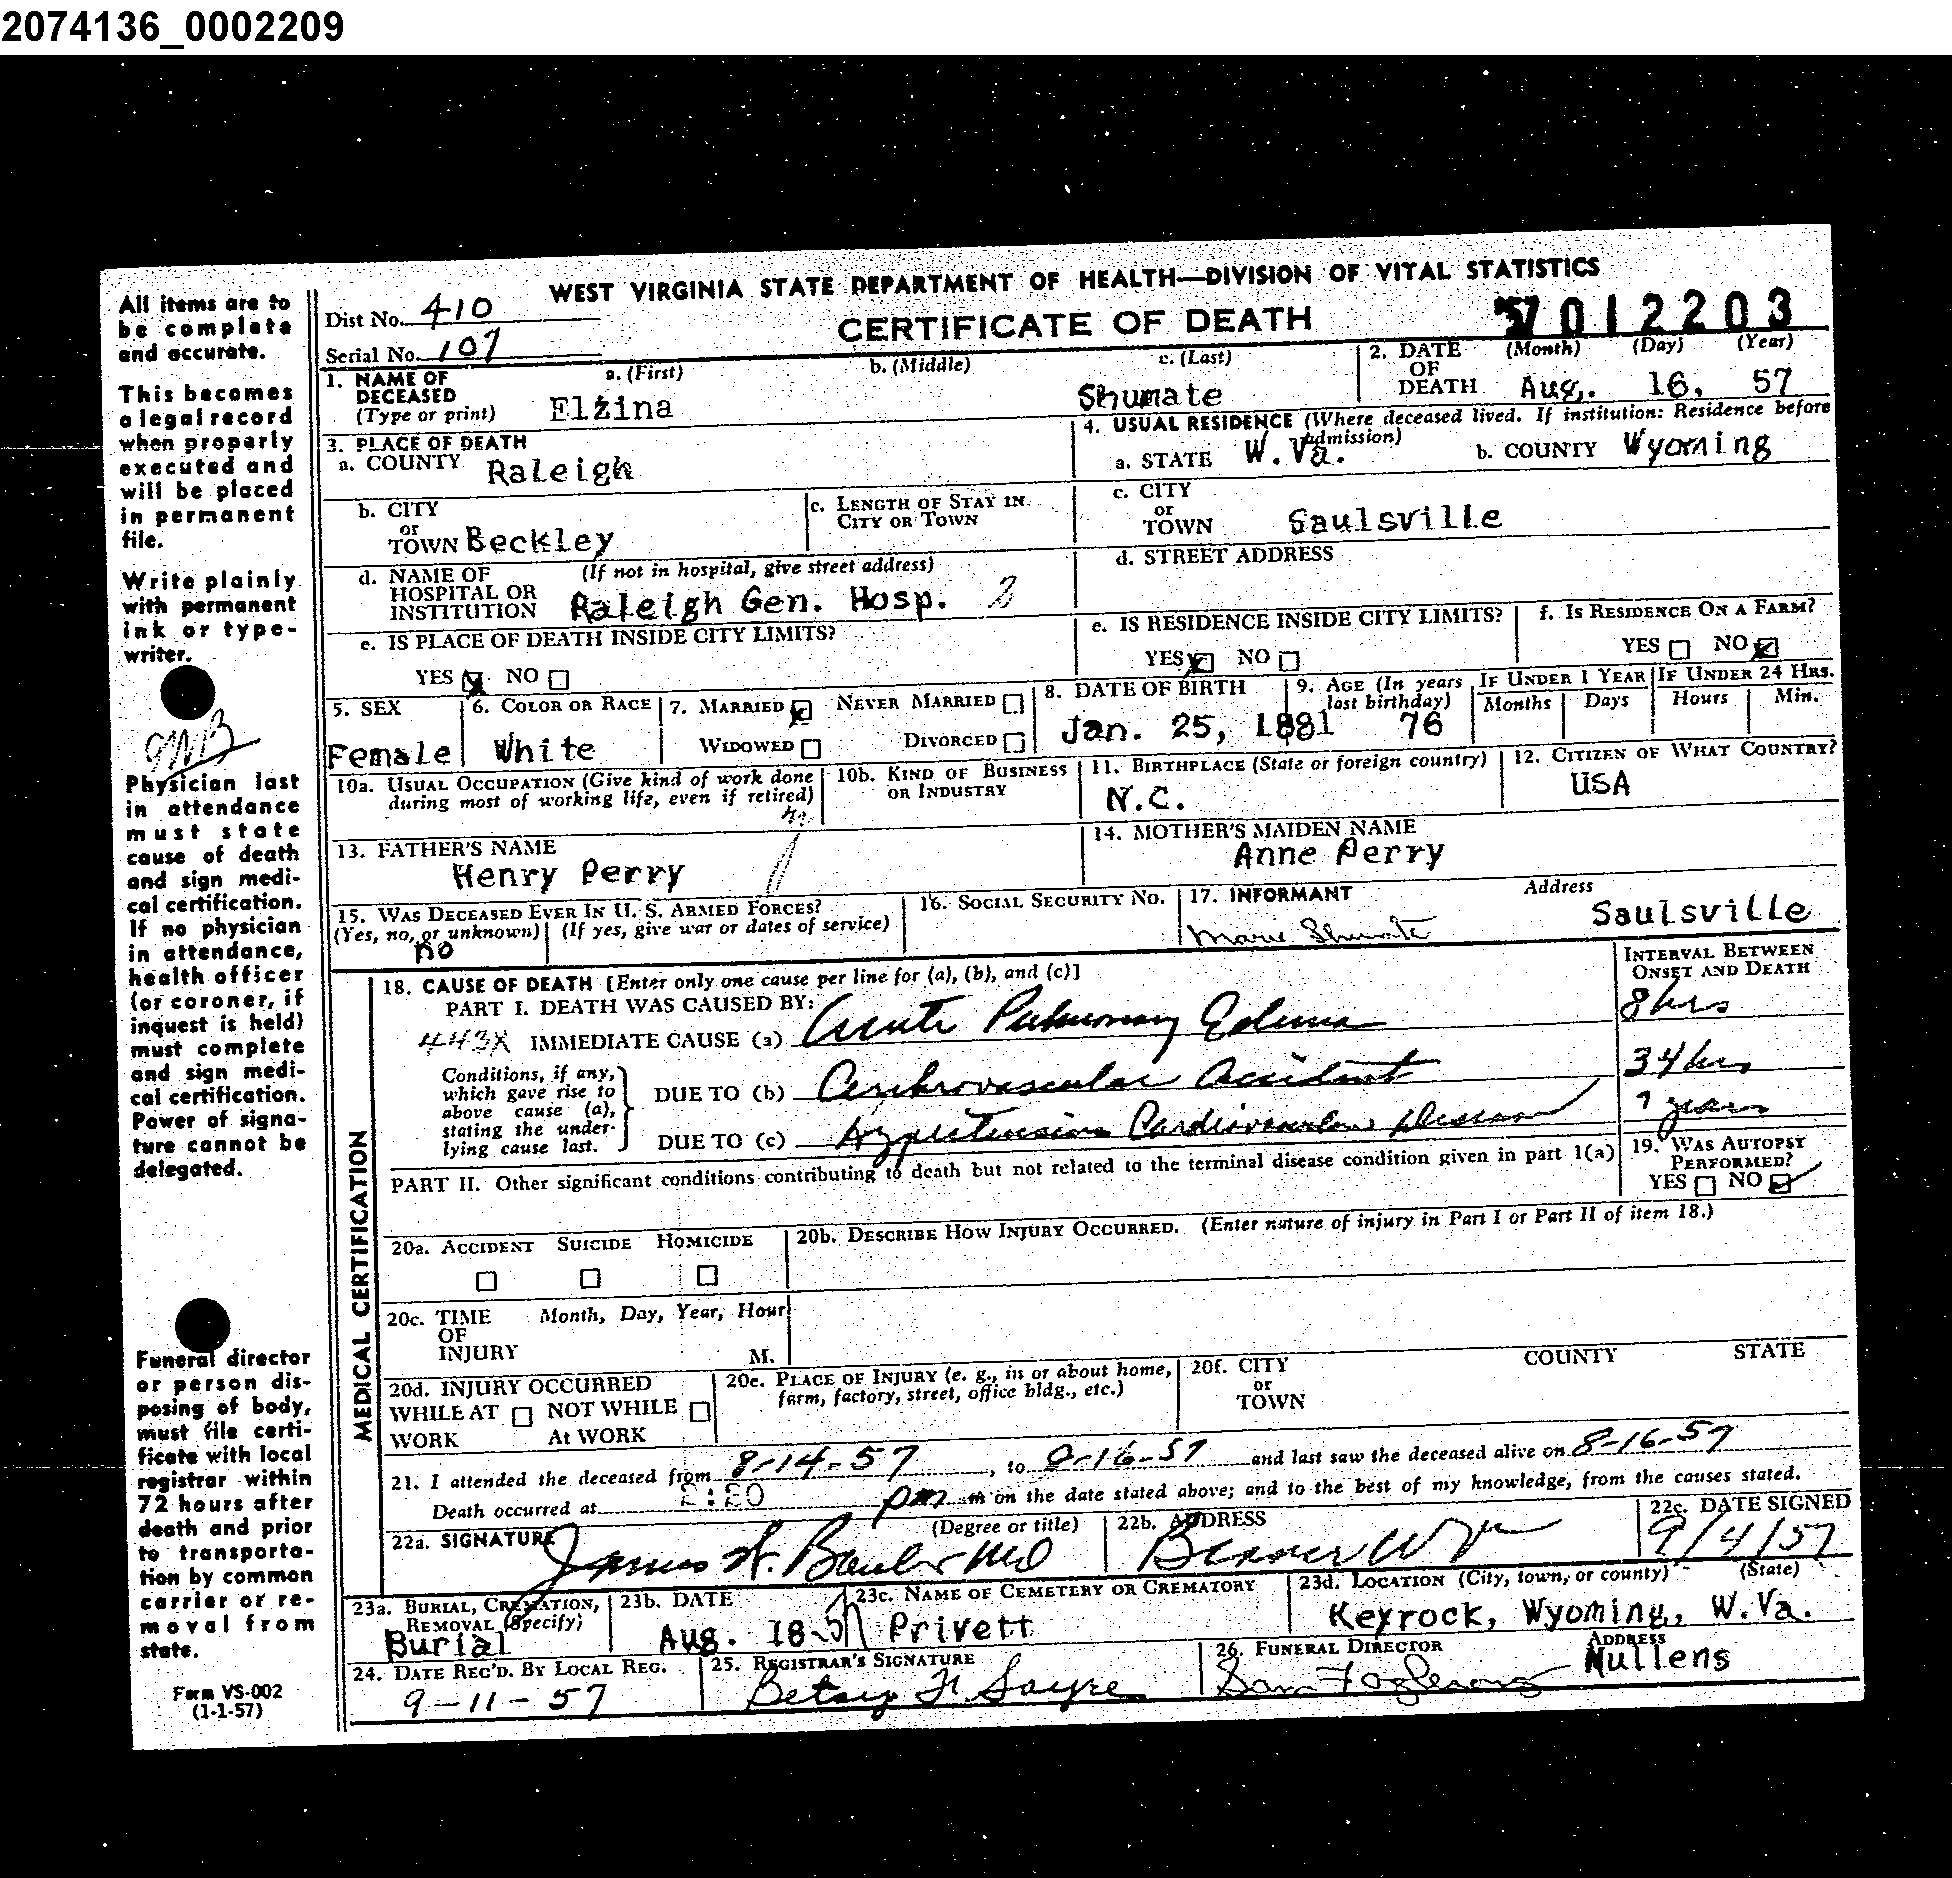 2074136_0002209
WEST VIRGINIA STATE DEPARTMENT OF HEALTH—DIVISION OF VITAL STATISTICS
CERTIFICATE OF DEATH
57 012203
Dist No. 410
Serial No. 107
All items are to
be complete
and accurate.
This becomes
a legal record
when properly
executed and
will be placed
in permanent
file.
Write plainly
with permanent
ink or type-
writer.
Physician last
in attendance
must state
cause of death
and sign medi-
cal certification.
If no physician
in attendance,
health officer
(or coroner, if
inquest is held)
must complete
and sign medi-
cal certification.
Power of signa-
ture cannot be
delegated.
Funeral director
or person dis-
posing of body,
must file certi-
ficate with local
registrar within
72 hours after
death and prior
to transporta-
tion by common
carrier or re-
moval from
state.
Form VS-002
(1-1-57)
1. NAME OF DECEASED (Type or print) a. (First) b. (Middle) c. (Last)
Elzina Shumate
2. DATE OF DEATH (Month) (Day) (Year)
Aug. 16, 57
3. PLACE OF DEATH
a. COUNTY Raleigh
b. CITY or TOWN Beckley
c. LENGTH OF STAY IN CITY OR TOWN
d. NAME OF HOSPITAL OR INSTITUTION (If not in hospital, give street address)
Raleigh Gen. Hosp. 2
e. IS PLACE OF DEATH INSIDE CITY LIMITS?
YES NO
4. USUAL RESIDENCE (Where deceased lived. If institution: Residence before admission)
a. STATE W. Va. b. COUNTY Wyoming
c. CITY or TOWN Saulsville
d. STREET ADDRESS
e. IS RESIDENCE INSIDE CITY LIMITS?
YES NO
f. IS RESIDENCE ON A FARM?
YES NO
5. SEX Female
6. COLOR OR RACE White
7. MARRIED NEVER MARRIED
WIDOWED DIVORCED
8. DATE OF BIRTH Jan. 25, 1881
9. AGE (In years last birthday) 76
IF UNDER 1 YEAR Months Days
IF UNDER 24 HRS. Hours Min.
10a. USUAL OCCUPATION (Give kind of work done during most of working life, even if retired)
10b. KIND OF BUSINESS OR INDUSTRY
11. BIRTHPLACE (State or foreign country) N.C.
12. CITIZEN OF WHAT COUNTRY? USA
13. FATHER'S NAME Henry Perry
14. MOTHER'S MAIDEN NAME Anne Perry
15. WAS DECEASED EVER IN U. S. ARMED FORCES?
(Yes, no, or unknown) (If yes, give war or dates of service)
no
16. SOCIAL SECURITY NO.
17. INFORMANT Address
Marie Shumate Saulsville
MEDICAL CERTIFICATION
18. CAUSE OF DEATH [Enter only one cause per line for (a), (b), and (c)]
INTERVAL BETWEEN ONSET AND DEATH
PART I. DEATH WAS CAUSED BY:
443X IMMEDIATE CAUSE (a) Acute Pulmonary Edema 8 hrs
Conditions, if any, which gave rise to above cause (a), stating the under-lying cause last.
DUE TO (b) Cerebrovascular Accident 34 hrs
DUE TO (c) Hypertensive Cardiovascular Disease 7 years
PART II. Other significant conditions contributing to death but not related to the terminal disease condition given in part 1(a)
19. WAS AUTOPSY PERFORMED?
YES NO
20a. ACCIDENT SUICIDE HOMICIDE
20b. DESCRIBE HOW INJURY OCCURRED. (Enter nature of injury in Part I or Part II of item 18.)
20c. TIME OF INJURY Month, Day, Year, Hour
M.
20d. INJURY OCCURRED
WHILE AT WORK NOT WHILE At WORK
20e. PLACE OF INJURY (e. g., in or about home, farm, factory, street, office bldg., etc.)
20f. CITY or TOWN COUNTY STATE
21. I attended the deceased from 8-14-57, to 8-16-57 and last saw the deceased alive on 8-16-57
Death occurred at 2:20 pm m on the date stated above; and to the best of my knowledge, from the causes stated.
22a. SIGNATURE (Degree or title)
James MD
22b. ADDRESS
Beaver W Va
22c. DATE SIGNED
9/4/57
23a. BURIAL, CREMATION, REMOVAL (Specify)
Burial
23b. DATE
Aug. 18-57
23c. NAME OF CEMETERY OR CREMATORY
Privett
23d. LOCATION (City, town, or county) (State)
Keyrock, Wyoming, W.Va.
24. DATE REC'D. BY LOCAL REG.
9-11-57
25. REGISTRAR'S SIGNATURE
Betsy H Sayre
26. FUNERAL DIRECTOR ADDRESS
Sam Mullens